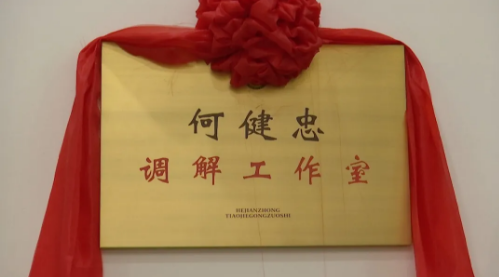 何健忠
调解工作室
HEJIANZHONG
TIAOJIEGONGZUOSHI